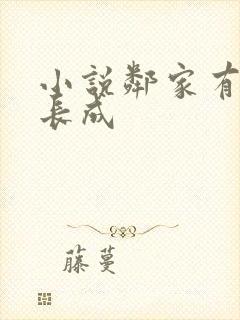 小說鄰家有
長成
藤蔓